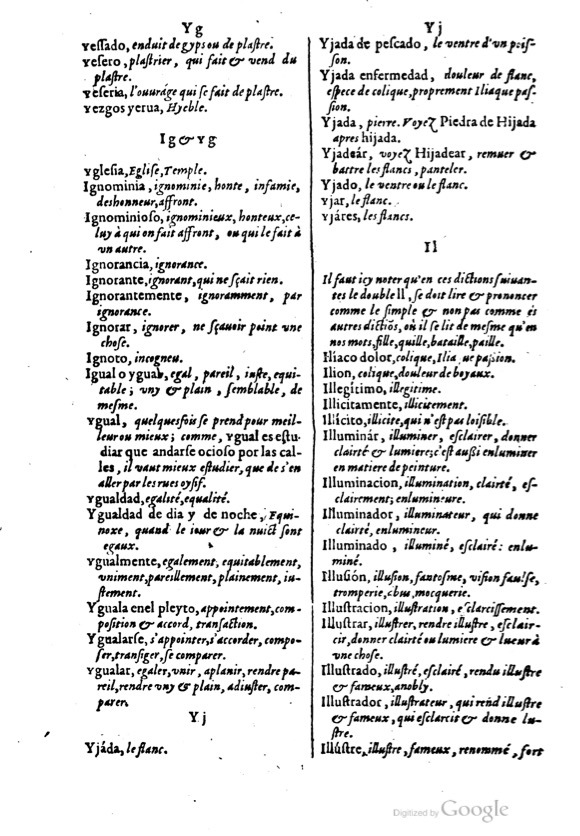 Yg
Yeſſado, enduit de gyps ou de plaſtre.
Yeſero, plaſtrier, qui fait & vend du
plaſtre.
Yeſeria, l'ouurage qui se fait de plaſtre.
Yezgos yerua, Hyeble.
Ig & yg
Ygleſia, Egliſe, Temple.
Ignominia, ignominie, honte, infamie,
deshonneur, affront.
Ignominioſo, ignominieux, honteux, ce-
luy à qui on fait affront, ou qui le fait à
vn autre.
Ignorancia, ignorance.
Ignorante, ignorant, qui ne ſçait rien.
Ignorantemente, ignoramment, par
ignorance.
Ignorar, ignorer, ne ſçauoir point vne
choſe.
Ignoto, incogneu.
Igual o ygual, egal, pareil, iuſte, equi-
table; vny & plain, ſemblable, de
meſme.
Ygual, quelquesfois se prend pour meil-
leur ou mieux; comme, Ygual es eſtu-
diar que andarſe ocioſo por las cal-
les, il vaut mieux eſtudier, que de s'en
aller par les rues oyſif.
Ygualdad, egalité, equalité.
Ygualdad de dia y de noche, Equi-
noxe, quand le iour & la nuict ſont
egaux.
Ygualmente, egalement, equitablement,
vniment, pareillement, plainement, iu-
ſtement.
Yguala enel pleyto, appointement, com-
poſition & accord, tranſaction.
Ygualarſe, s'appointer, s'accorder, compo-
ſer, tranſiger, ſe comparer.
Ygualar, egaler, vnir, aplanir, rendre pa-
reil, rendre vny & plain, adiuſter, com-
parer.
Yj
Yjáda, le flanc.
Yj
Yjada de peſcado, le ventre d'vn poiſ-
ſon.
Yjada enfermedad, douleur de flanc,
eſpece de colique, proprement Iliaque paſ-
ſion.
Yjada, pierre. Voyez Piedra de Hijada
apres hijada.
Yjadeár, voyez Hijadear, remuer &
battre les flancs, panteler.
Yjado, le ventre ou le flanc.
Yjar, le flanc.
Yjáres, les flancs.
Il
Il faut icy noter qu'en ces dictions ſuiuan-
tes le double ll, ſe doit lire & prononcer
comme le ſimple & non pas comme és
autres dictiõs, où il ſe lit de meſme qu'en
nos mots, fille, quille, bataille, paille.
Iliaco dolor, colique, Iliaque paſſion.
Ilion, colique, douleur de boyaux.
Illegítimo, illegitime.
Illicitamente, illicitement.
Illícito, illicite, qui n'eſt pas loiſible.
Illuminár, illuminer, eſclairer, donner
clairté & lumiere; c'eſt auſſi enluminer
en matiere de peinture.
Illuminacion, illumination, clairté, eſ-
clairement; enlumineure.
Illuminador, illuminateur, qui donne
clairté, enlumineur.
Illuminado, illuminé, eſclairé: enlu-
miné.
Illuſión, illuſion, fantoſme, viſion fauſſe,
tromperie, abus, mocquerie.
Illuſtracion, illuſtration, eſclarciſſement.
Illuſtrar, illuſtrer, rendre illuſtre, eſclair-
cir, donner clairté ou lumiere & lueur à
vne choſe.
Illuſtrado, illuſtré, eſclairé, rendu illuſtre
& fameux, anobly.
Illuſtrador, illuſtrateur, qui rend illuſtre
& fameux, qui eſclarcit & donne lu-
ſtre.
Illúſtre, illuſtre, fameux, renommé, fort
Digitized by Google